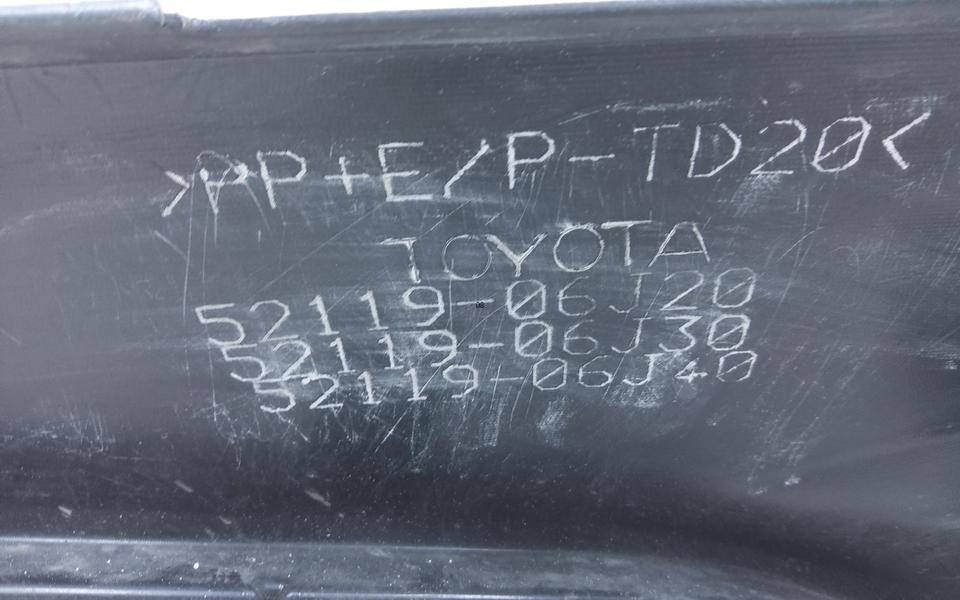 >PP+E/P-TD20<
TOYOTA
52119-06J20
52119-06J30
52119-06J40